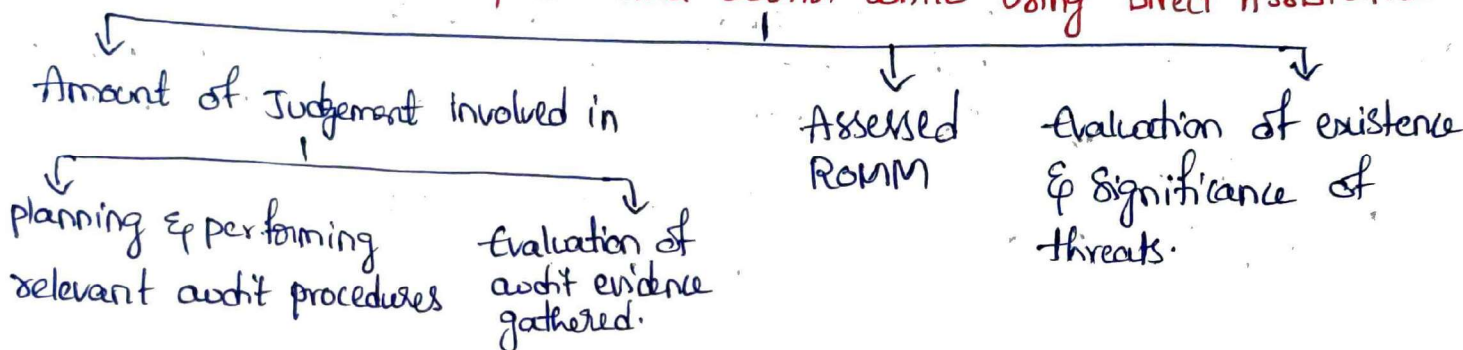 using Direct
Amount of Judgement involved in
planning & performing
relevant audit procedures
Evaluation of
audit evidence
gathered.
Assessed
ROMM
Evaluation of existence
& Significance of
threats.